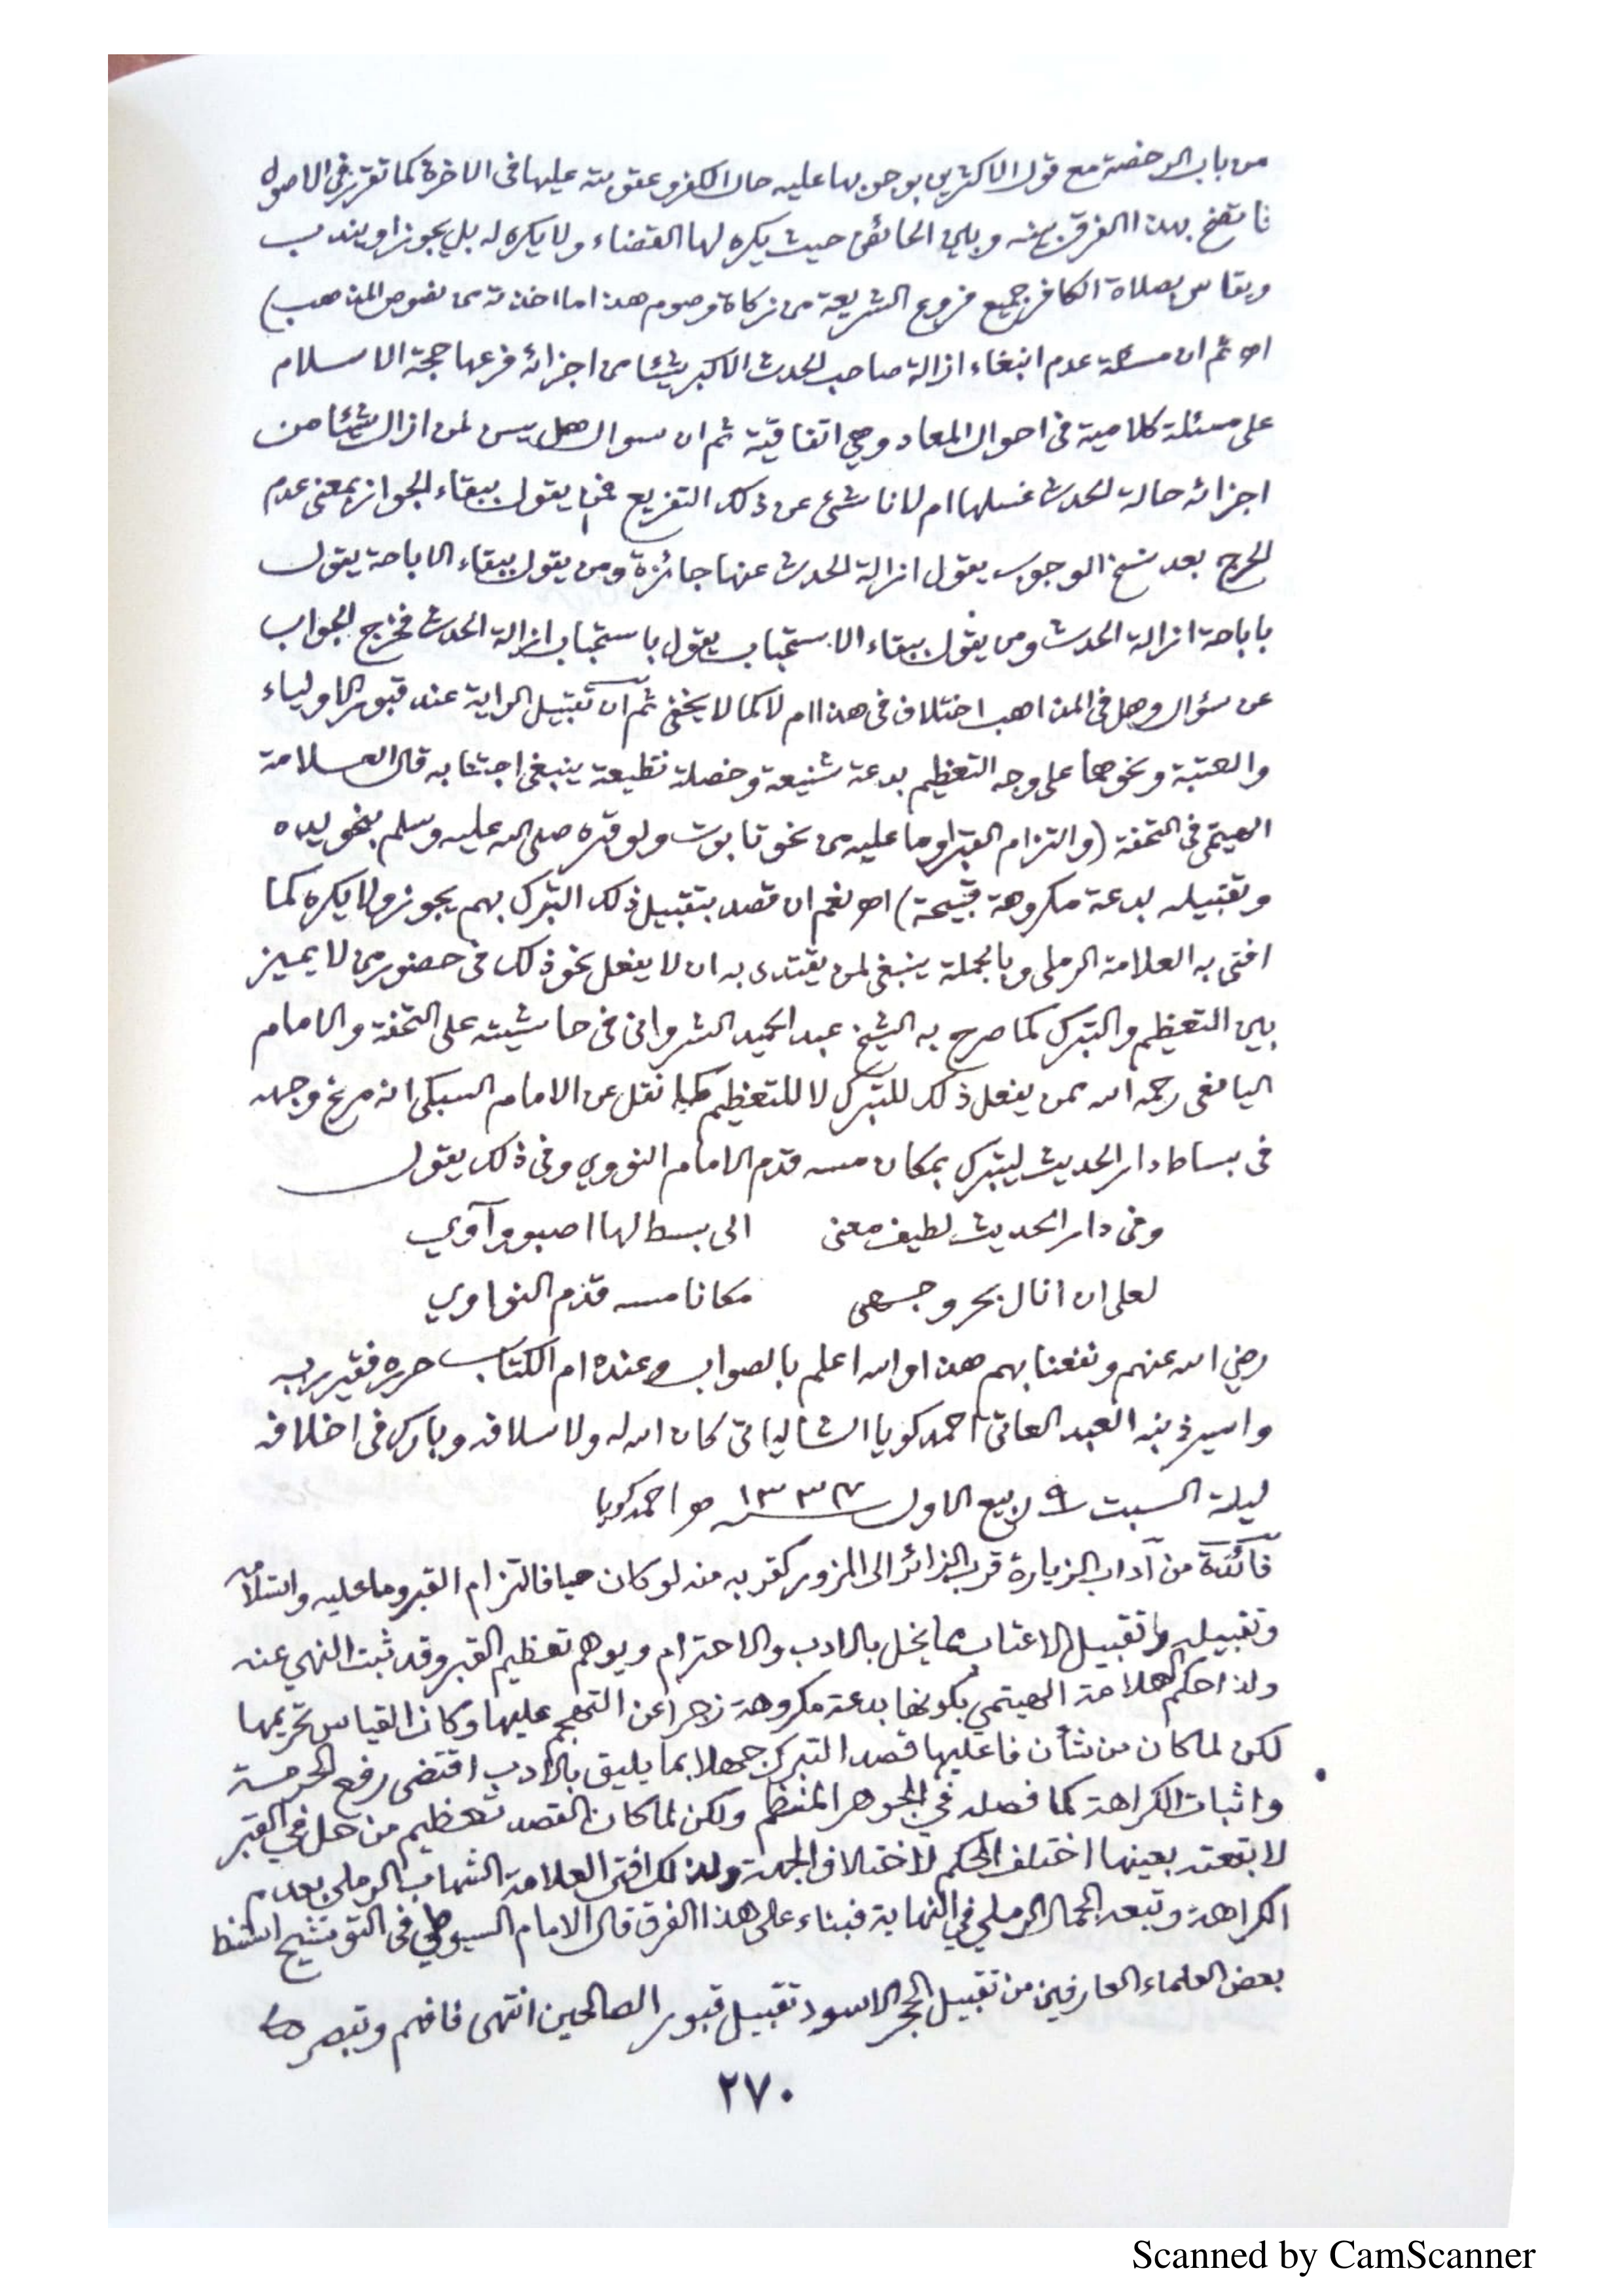 من باب الرخصة مع قول الاكثرين بوجوبها عليه حال الكفر وعقوبته عليها فى الاخرة كما تقرر فى الاصول
فاتضح بهذا الفرق بينه وبين الحائض حيث يكره لها القضاء ولا يكره له بل يجوز او يندب
ويقاس بصلاة الكافر جميع فروع الشريعة من زكاة وصوم هذا ما اخذته من نصوص المذهب)
اه ثم ان مسئلة عدم ابنغاء ازالة صاحب الحدث الاكبر شيئا من اجزائه فرعها حجة الاسلام
على مسئلة كلامية فى احوال المعاد وهي اتفاقية ثم ان سوال هل يسن لمن ازال شيئا من
اجزائه حالة الحدث غسلها ام لا ناشئ عن ذلك التفريع فمن يقول ببقاء الجواز بمعنى عدم
الحرج بعد نسخ الوجوب يقول ازالة الحدث عنها جائزة ومن يقول ببقاء الاباحة يقول
باباحة ازالة الحدث ومن يقول ببقاء الاستحباب يقول باستحباب ازالة الحدث فخرج الجواب
عن سؤال وهل فى المذاهب اختلاف فى هذا ام لا كما لا يخفى ثم ان تقبيل الراية عند قبور الاولياء
والعتبة ونحوهما على وجه التعظيم بدعة شنيعة وخصلة فظيعة ينبغى اجتنابه قال العلامة
الهيتمى فى التحفة (والتزام القبر او ما عليه من نحو تابوت ولو قبره صلى الله عليه وسلم بنحو يده
وتقبيله بدعة مكروهة قبيحة) اه نعم ان قصد بتقبيل ذلك التبرك بهم يجوز ولا يكره كما
افتى به العلامة الرملى وبالجملة ينبغى لمن يقتدى به ان لا يفعل نحو ذلك فى حضور من لا يميز
بين التعظيم والتبرك كما صرح به الشيخ عبد الحميد الشروانى فى حاشيته على التحفة والامام
اليافعى رحمه الله ممن يفعل ذلك للتبرك لا للتعظيم كما نقل عن الامام السبكى انه مرغ وجهه
فى بساط دار الحديث ليتبرك بمكان مسه قدم الامام النووي وفى ذلك يقول
وفى دار الحديث لطيف معنى الى بسط لها اصبو وآوي
لعلى ان انال بحر وجهى مكانا مسه قدم النواوي
رضي الله عنهم ونفعنا بهم هذا والله اعلم بالصواب وعنده ام الكتاب حرره فقير ربه
واسير ذنبه العبد العانى احمد كويا الشالياتى كان الله له ولاسلافه وبارك فى اخلافه
ليلة السبت ٩ ربيع الاول ١٣٣٧ هو احمد كويا
فائدة من آداب الزيارة قرب الزائر الى المزور كقربه منه لو كان حيا فالتزام القبر وما عليه واستلامه
وتقبيله وتقبيل الاعتاب مما يخل بالادب والاحترام ويوهم تعظيم القبر وقد ثبت النهي عنه
ولذا حكم العلامة الهيتمي بكونها بدعة مكروهة زجرا عن التهجم عليها وكان القياس تحريمها
لكن لما كان من شأن فاعليها قصد التبرك جهلا بما يليق بالادب اقتضى رفع الحرمة
واثبات الكراهة كما فصله في الجوهر المنظم ولكن لما كان القصد تعظيم من حل في القبر
لا بقعته بعينها اختلف الحكم لاختلاف الجهة ولذلك افتى العلامة الشهاب الرملى بعدم
الكراهة وتبعه الجمال الرملي في النهاية فبناء على هذا الفرق قال الامام السيوطي فى التوشيح استنبط
بعض العلماء العارفين من تقبيل الحجر الاسود تقبيل قبور الصالحين انتهى فافهم وتبصر
٢٧٠
Scanned by CamScanner